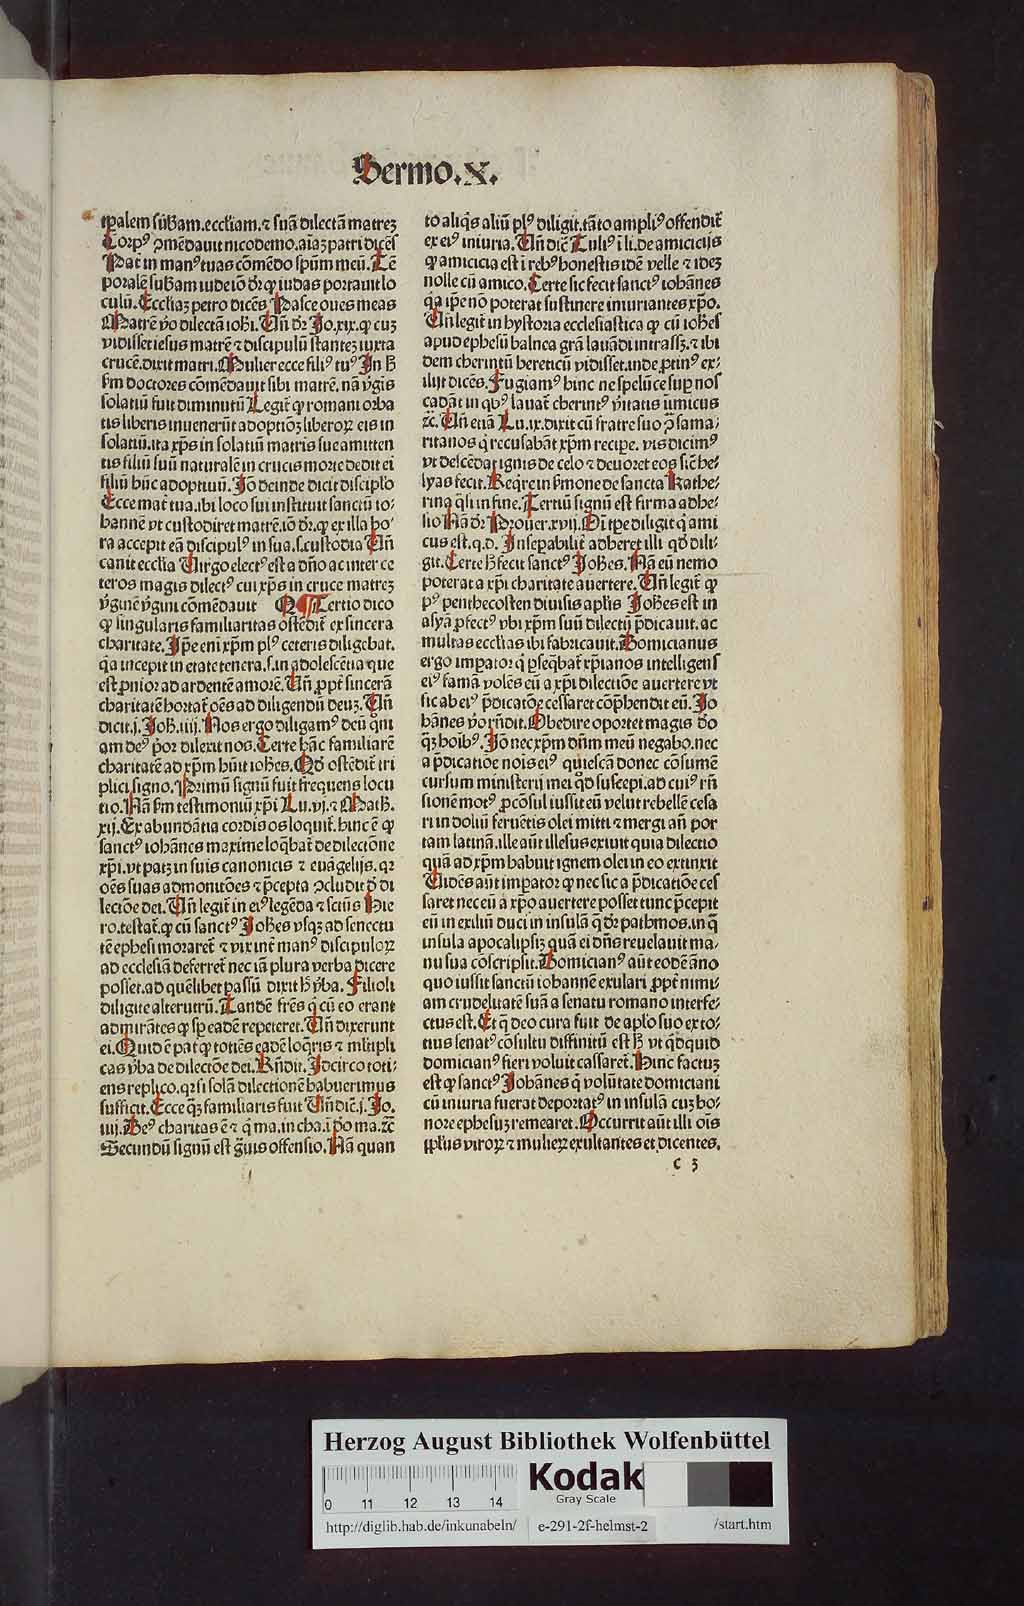 Sermo.X.
tꝑalem sb̄am.eccl̄iam.⁊ suā dilectā matrez
Corpꝰ ꝯmēdauit nicodemo.aīaꝫ patri dicēs
Pat̄ in manꝰ tuas cōmēdo spūm meū.Tē
poralē sub̄am iude iō dr̄ ꝙ iudas portauit lo
culū.Eccl̄iaꝫ petro dicēs Pasce oues meas
Matrē v̄o dilectā ioh̄i.Un̄ dr̄ Jo.xix.ꝙ cuꝫ
vidisset iesus matrē ⁊ discipulū stantez iuxta
crucē.dixit matri.Mulier ecce filiꝰ tuꝰ Jn h̄
ẜm doctores cōmēdauit sibi matrē.nā v̄gīs
solatiū fuit diminutū Legit̄ ꝙ romani orba
tis liberis inuenerūt adoptioꝫ liberoꝝ eis in
solatiū.ita xp̄s in solatiū matris sue amitten
tis filiū suū naturalē in crucis morte dedit ei
filiū hūc adoptiuū.Jō deinde dicit discipl̄o
Ecce mat̄ tua.ibi loco sui instituit sanctū io⸗
hannē vt custodiret matrē.iō dr̄.ꝙ ex illa ho⸗
ra accepit eā discipulꝰ in sua.s.custodia Un̄
canit eccl̄ia Uirgo electꝰ est a dn̄o ac inter ce
teros magis dilectꝰ cui xp̄s in cruce matrez
v̄ginē v̄gini cōmēdauit ¶Tertio dico
ꝙ singularis familiaritas ostēdit̄ ex sincera
charitate.Jp̄e eni xp̄m plꝰ ceteris diligebat.
q̄a incepit in etate tenera.s.in adolescētia que
est ꝓnior ad ardentē amorē.Un̄ ꝓpt̄ sincerā
charitatē hortat̄ oēs ad diligendū deuꝫ.Un̄
dicit.j.Joh̄.iiij.Nos ergo diligamꝰ deū qm̄
am deꝰ p̄or dilexit nos.Certe hāc familiarē
charitatē ad xp̄m hūit ioh̄es.Qd̄ ostēdit̄ tri
plici signo.Primū signū fuit frequens locu
tio.Nā ẜm testimoniū xp̄i Lu.vj.⁊ Math̄.
xij.Ex abundātia cordis os loquit̄.hinc ē ꝙ
sanctꝰ iohānes maxime loq̄bat̄ de dilectione
xp̄i.vt patꝫ in suis canonicis ⁊ euāgelijs.qꝫ
oēs suas admonitōes ⁊ p̄cepta ꝯcludit d̄ di
lectōe dei.Un̄ legit̄ in eiꝰ legēda ⁊ sctūs Hie
ro.testat̄.ꝙ cū sanctꝰ Joh̄es vsqꝫ ad senectu
tē ephesi moraret̄ ⁊ vix int̄ manꝰ discipuloꝝ
ad ecclesiā deferret̄ nec iā plura verba dicere
posset.ad quēlibet passū dixit h̄ v̄ba.Filioli
diligite alterutrū.Tandē frēs q̄ cū eo erant
admirātes ꝙ sp̄ eadē repeteret.Un̄ dixerunt
ei.Quid ē pat̄ ꝙ totiēs eadē loq̄ris ⁊ ml̄tipli
cas v̄ba de dilectōe dei.Rn̄dit.Jdcirco toti⸗
ens replico.qꝛ si solā dilectionē habuerimus
sufficit.Ecce qꝫ familiaris fuit Un̄ dic̄.j.Jo.
iiij.Deꝰ charitas ē ⁊ q̄ ma.in cha.ī d̄o ma.ꝛc̄
Secundū signū est ḡuis offensio.Nā quan
to aliq̄s aliū plꝰ diligit.tāto ampliꝰ offendit̄
ex eiꝰ iniuria.Un̄ dic̄ Tuliꝰ ī li.de amicicijs
ꝙ amicicia est ī rebꝰ honestis idē velle ⁊ idez
nolle cū amico.Certe sic fecit sanctꝰ iohānes
q̄a ip̄e nō poterat sustinere iniuriantes xp̄o.
Un̄ legit̄ in hystoria ecclesiastica ꝙ cū ioh̄es
apud ephesū balnea gr̄a lauādi intrassꝫ.⁊ ibi
dem cherintū hereticū vidisset.inde ꝓtinꝰ ex⸗
ilijt dicēs.Fugiamꝰ hinc ne spelūce sup̄ nos
cadāt in qbꝰ lauat̄ cherintꝰ v̄itatis inīmicus
ꝛc̄.Un̄ etiā Lu.ix.dixit cū fratre suo ꝯ̄ sama⸗
ritanos q̄ recusabāt xp̄m recipe.vis dicimꝰ
vt descēdat ignis de celo ⁊ deuoret eos sic̄ he⸗
lyas fecit.Reqre in ẜmone de sancta Kathe⸗
rina q̄li in fine.Tertiū signū est firma adhe⸗
sio Nā dr̄ Prouer.xvij.Oī tpe diligit q̄ ami
cus est.q.d.Jnsepabilit̄ adheret illi qd̄ dili⸗
git.Certe h̄ fecit sanctꝰ Joh̄es.Nā eū nemo
poterat a xp̄i charitate auertere.Un̄ legit̄ ꝙ
pꝰ penthecosten diuisis apl̄is Joh̄es est in
asyā ꝓfectꝰ vbi xp̄m suū dilectū p̄dicauit.ac
multas eccl̄ias ibi fabricauit.Domicianus
ergo imꝑator q̄ ꝑseq̄bat̄ xp̄ianos intelligens
eiꝰ famā volēs eū a xp̄i dilectiōe auertere vt
sic ab eiꝰ p̄dicatōe cessaret cōp̄hendit eū.Jo
hānes v̄o rn̄dit.Obedire oportet magis d̄o
qꝫ hoībꝰ.Jō nec xp̄m dn̄m meū negabo.nec
a p̄dicatiōe nois eiꝰ quiescā donec cōsumē
cursum ministerij mei qd̄ suscepi.ad cuiꝰ rn̄
sionē motꝰ ꝓcōsul iussit eū velut rebellē cesa
ri in doliū feruētis olei mitti ⁊ mergi an̄ por
tam latinā.ille aūt illesus exiuit quia dilectio
quā ad xp̄m habuit ignem olei in eo extinxit
Uidēs aūt imꝑator ꝙ nec sic a p̄dicatiōe ces
saret nec eū a xp̄o auertere posset tunc p̄cepit
eū in exiliū duci in insulā q̄ dr̄ pathmos.in q̄
insula apocalipsiꝫ quā ei dn̄s reuelauit ma⸗
nu sua cōscripsit.Domicianꝰ aūt eodē āno
quo iussit sanctū iohannē exulari ꝓpt̄ nimi⸗
am crudelitatē suā a senatu romano interfe⸗
ctus est.Et q̄ deo cura fuit de apl̄o suo ex to⸗
tius senatꝰ cōsultu diffinitū est h̄ vt qd̄quid
domicianꝰ fieri voluit cassaret̄.Hinc factuꝫ
est ꝙ sanctꝰ Johānes q̄ volūtate domiciani
cū iniuria fuerat deportatꝰ in insulā cuꝫ ho⸗
nore ephesuꝫ remearet.Occurrit aūt illi oīs
ppl̄us viroꝝ ⁊ mulieꝝ exultantes et dicentes.
c 3
Herzog August Bibliothek Wolfenbüttel
0 11 12 13 14
Kodak
Gray Scale
http://diglib.hab.de/inkunabeln/ e-291-2f-helmst-2 /start.htm